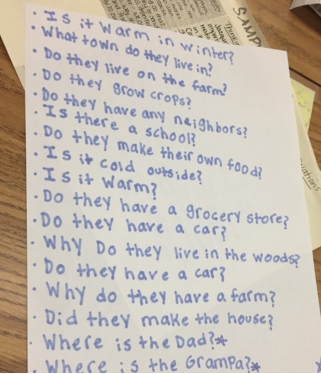 • Is it warm in winter?
• What town do they live in?
• Do they live on the farm?
• Do they grow crops?
• Do they have any neighbors?
• Is there a school?
• Do they make their own food?
• Is it cold outside?
• Is it warm?
• Do they have a grocery store?
• Do they have a car?
• Why Do they live in the woods?
• Do they have a car?
• Why do they have a farm?
• Did they make the house?
• Where is the Dad?*
• Where is the Grampa?*